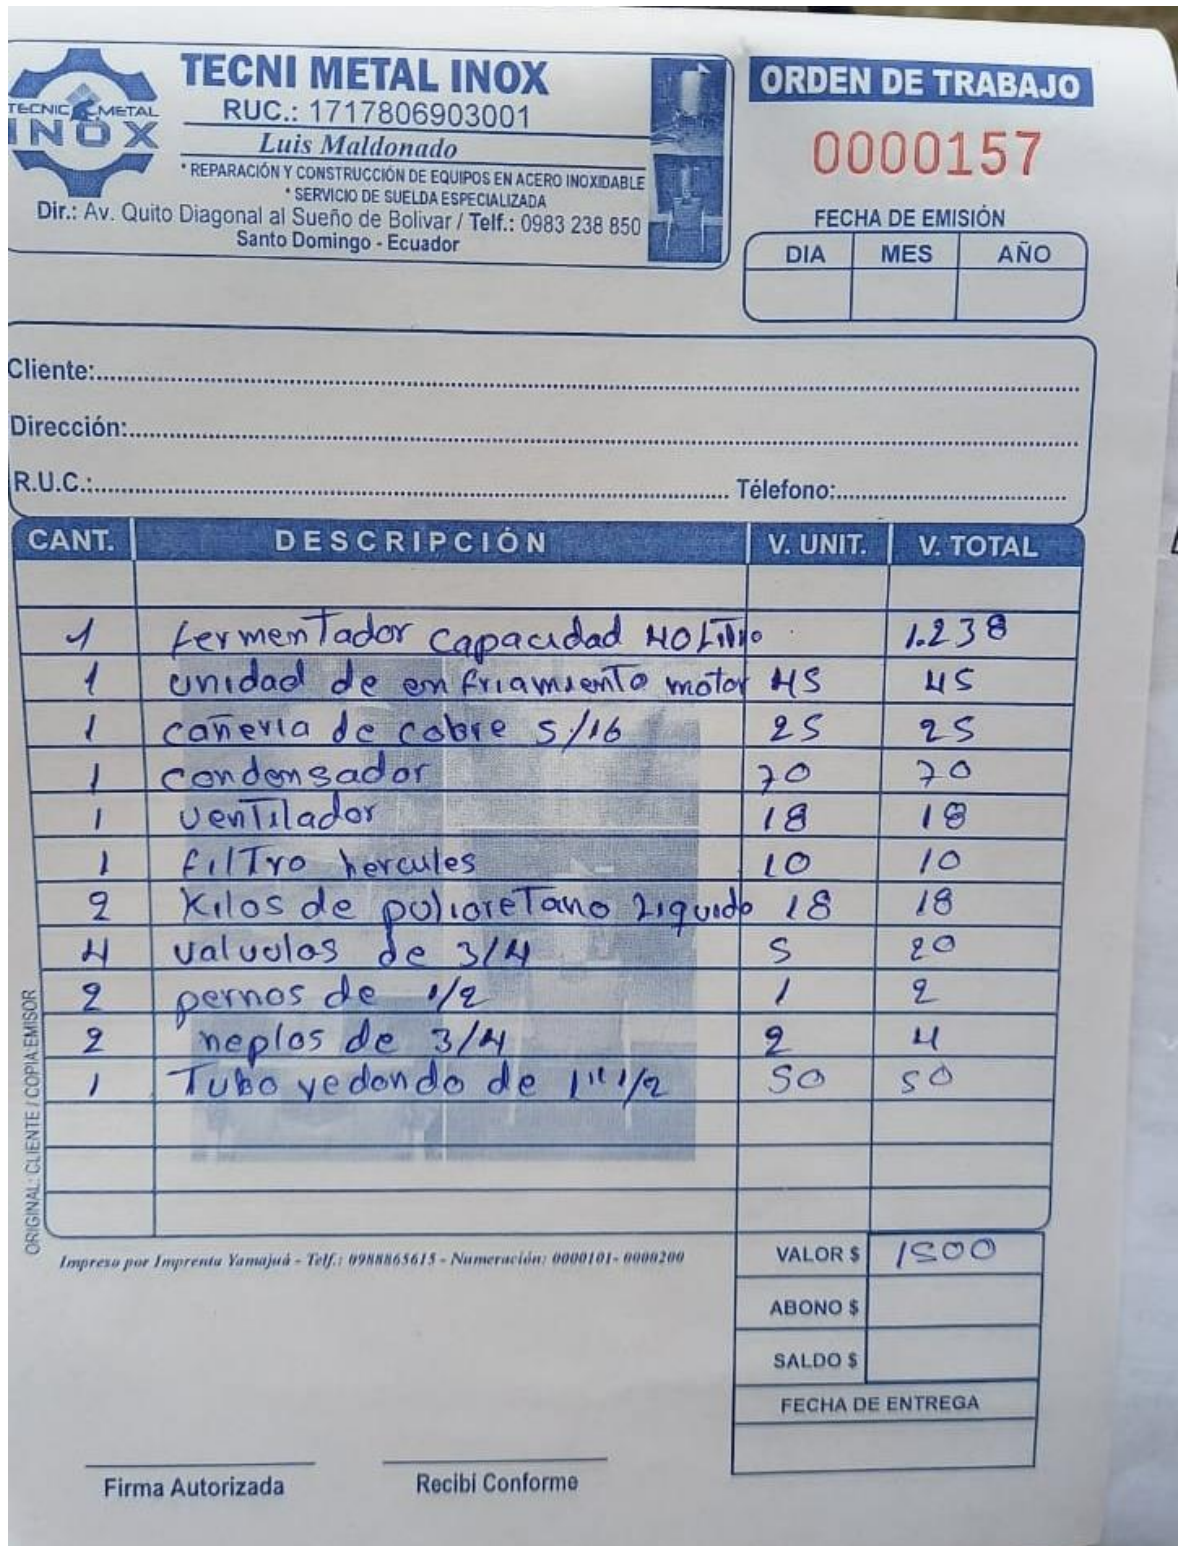 TECNIC METAL
INOX
TECNI METAL INOX
RUC.: 1717806903001
Luis Maldonado
* REPARACIÓN Y CONSTRUCCIÓN DE EQUIPOS EN ACERO INOXIDABLE
* SERVICIO DE SUELDA ESPECIALIZADA
Dir.: Av. Quito Diagonal al Sueño de Bolivar / Telf.: 0983 238 850
Santo Domingo - Ecuador
ORDEN DE TRABAJO
0000157
FECHA DE EMISIÓN
DIA MES AÑO
Cliente:
Dirección:
R.U.C.: Télefono:
CANT. DESCRIPCIÓN V. UNIT. V. TOTAL
1 fermentador capacidad 40 Litro 1.238
1 unidad de enfriamiento motor 45 45
1 cañeria de cobre 5/16 25 25
1 condensador 70 70
1 ventilador 18 18
1 filtro hercules 10 10
2 Kilos de polioretano Liquido 18 18
4 valvulas de 3/4 5 20
2 pernos de 1/2 1 2
2 neplos de 3/4 2 4
1 Tubo redondo de 1" 1/2 50 50
ORIGINAL: CLIENTE / COPIA: EMISOR
Impreso por Imprenta Yamajuá - Telf.: 0988865615 - Numeración: 0000101- 0000200
VALOR $ 1500
ABONO $
SALDO $
FECHA DE ENTREGA
Firma Autorizada Recibí Conforme